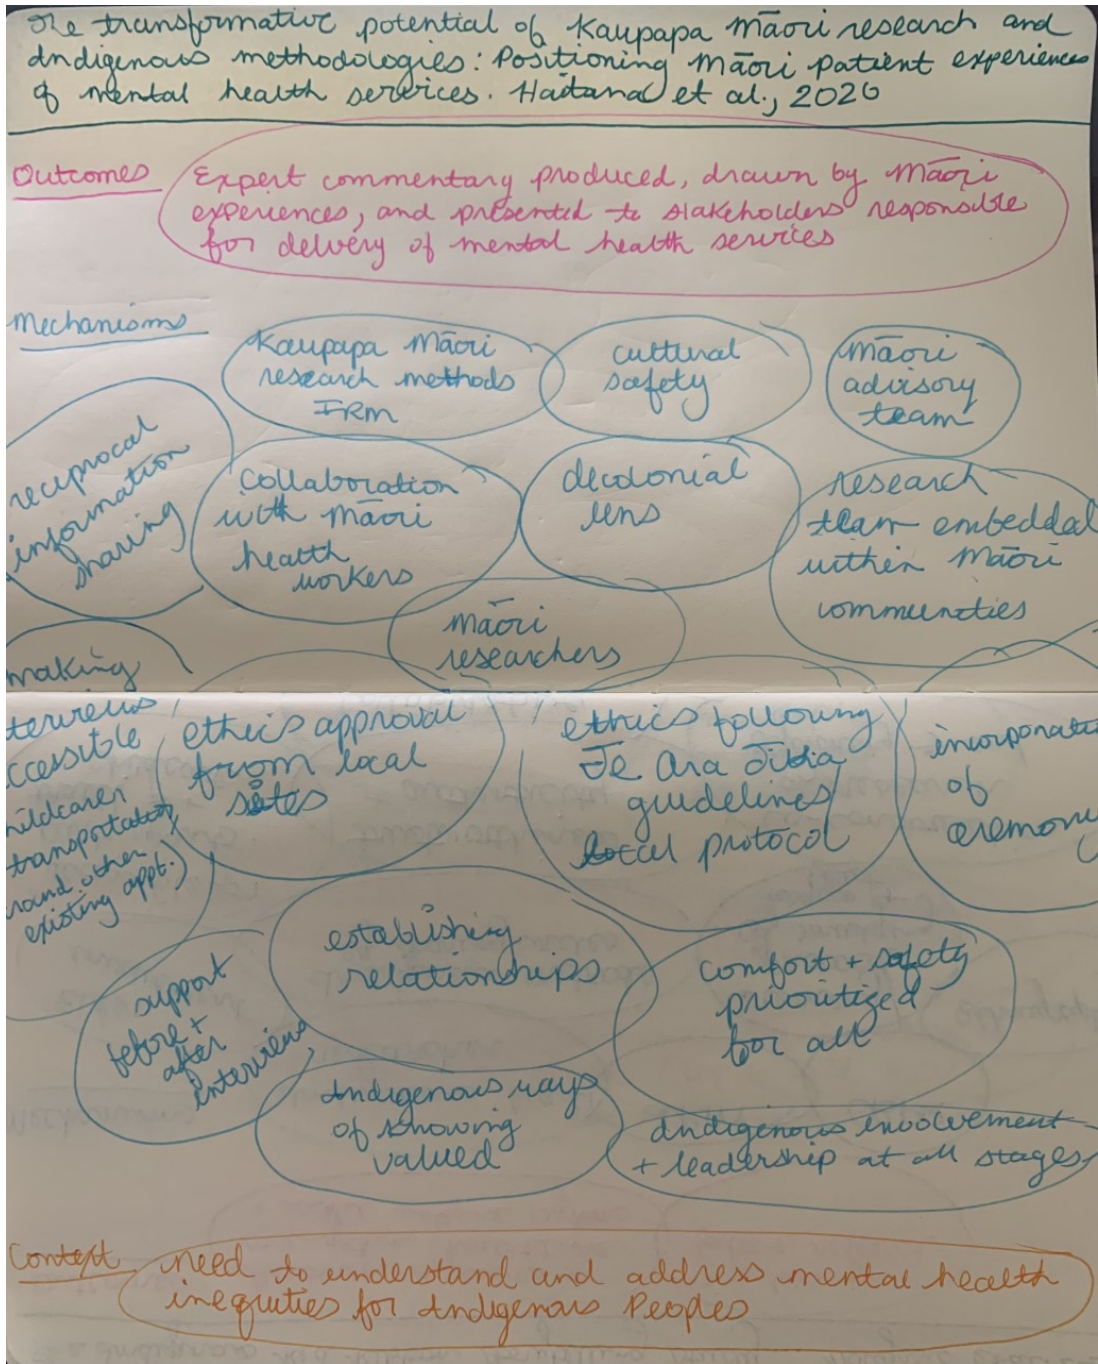 The transformative potential of Kaupapa Māori research and
Indigenous methodologies: Positioning Māori patient experiences
of mental health services. Haitana et al., 2020
Outcomes
Expert commentary produced, drawn by Māori
experiences, and presented to stakeholders responsible
for delivery of mental health services
Mechanisms
Kaupapa Māori
research methods
IRM
cultural
safety
Māori
advisory
team
reciprocal
information
sharing
Collaboration
with Māori
health
workers
decolonial
lens
research
team embedded
within Māori
communities
Māori
researchers
making
terviews
ccessible
hildcare,
transportation,
round other
existing appt.)
ethics approval
from local
sites
ethics following
Te Ara Tika
guidelines
local protocol
incorporati
of
ceremony
support
before +
after
interview
establishing
relationships
comfort + safety
prioritized
for all
Indigenous ways
of knowing
valued
Indigenous involvement
+ leadership at all stages
Context
need to understand and address mental health
inequities for Indigenous Peoples